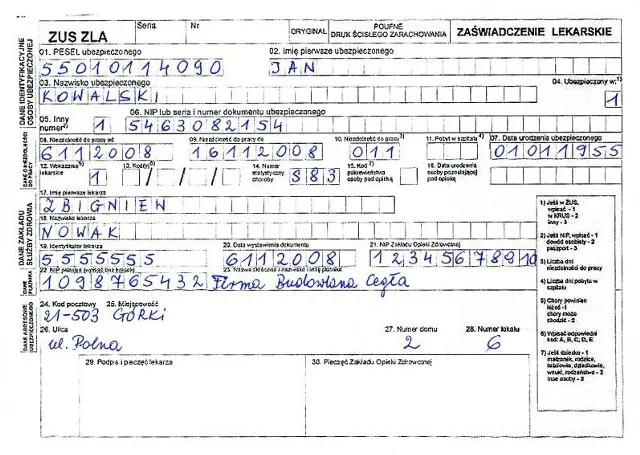 ZUS ZLA Seria Nr ORYGINAŁ POUFNE DRUK ŚCISŁEGO ZARACHOWANIA ZAŚWIADCZENIE LEKARSKIE
01. PESEL ubezpieczonego 02. Imię pierwsze ubezpieczonego
55010114090 JAN
03. Nazwisko ubezpieczonego 04. Ubezpieczony w:1)
KOWALSKI 1
05. Inny numer2) 06. NIP lub seria i numer dokumentu ubezpieczonego
1 5463082154
08. Niezdolność do pracy od 09. Niezdolność do pracy do 10. Niezdolność do pracy3) 11. Pobyt w szpitalu4) 07. Data urodzenia ubezpieczonego
6112008 16112008 011 01011955
12. Wskazania lekarskie 13. 14. Numer statystyczny choroby 15. Kod7) pokrewieństwa osoby pod opieką 16. Data urodzenia osoby pozostającej pod opieką
1 / / / S83
17. Imię pierwsze lekarza
ZBIGNIEW
18. Nazwisko lekarza
NOWAK
19. Identyfikator lekarza 20. Data wystawienia dokumentu 21. NIP Zakładu Opieki Zdrowotnej
5555555 6112008 12345678910
22. NIP 23.
1098765432 Firma Budowlana Cegła
24. Kod pocztowy 25. Miejscowość
21-503 GÓRKI
26. Ulica 27. Numer domu 28. Numer lokalu
ul. Polna 2 6
29. Podpis i pieczęć lekarza 30. Pieczęć Zakładu Opieki Zdrowotnej
DANE IDENTYFIKACYJNE OSOBY UBEZPIECZONEJ
DANE ZAKŁADU SŁUŻBY ZDROWIA
DANE ADRESOWE UBEZPIECZONEGO
1) Jeśli w ZUS,
wpisać - 1
w KRUS - 2
inny - 3
2) Jeśli NIP, wpisać - 1
dowód osobisty - 2
paszport - 3
3) Liczba dni
niezdolności do pracy
4) Liczba dni pobytu w
szpitalu
5) Chory powinien
leżeć - 1
chory może
chodzić - 2
6) Wpisać odpowiedni
kod: A, B, C, D, E
7) Jeśli dziecko - 1
małżonek, rodzice,
teściowie, dziadkowie,
wnuki, rodzeństwo - 2
inne osoby - 3